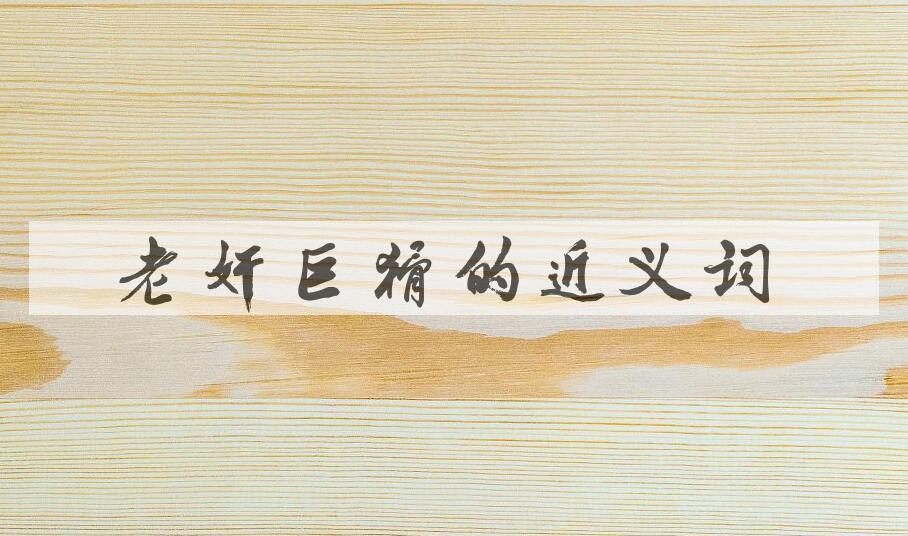 老奸巨猾的近义词